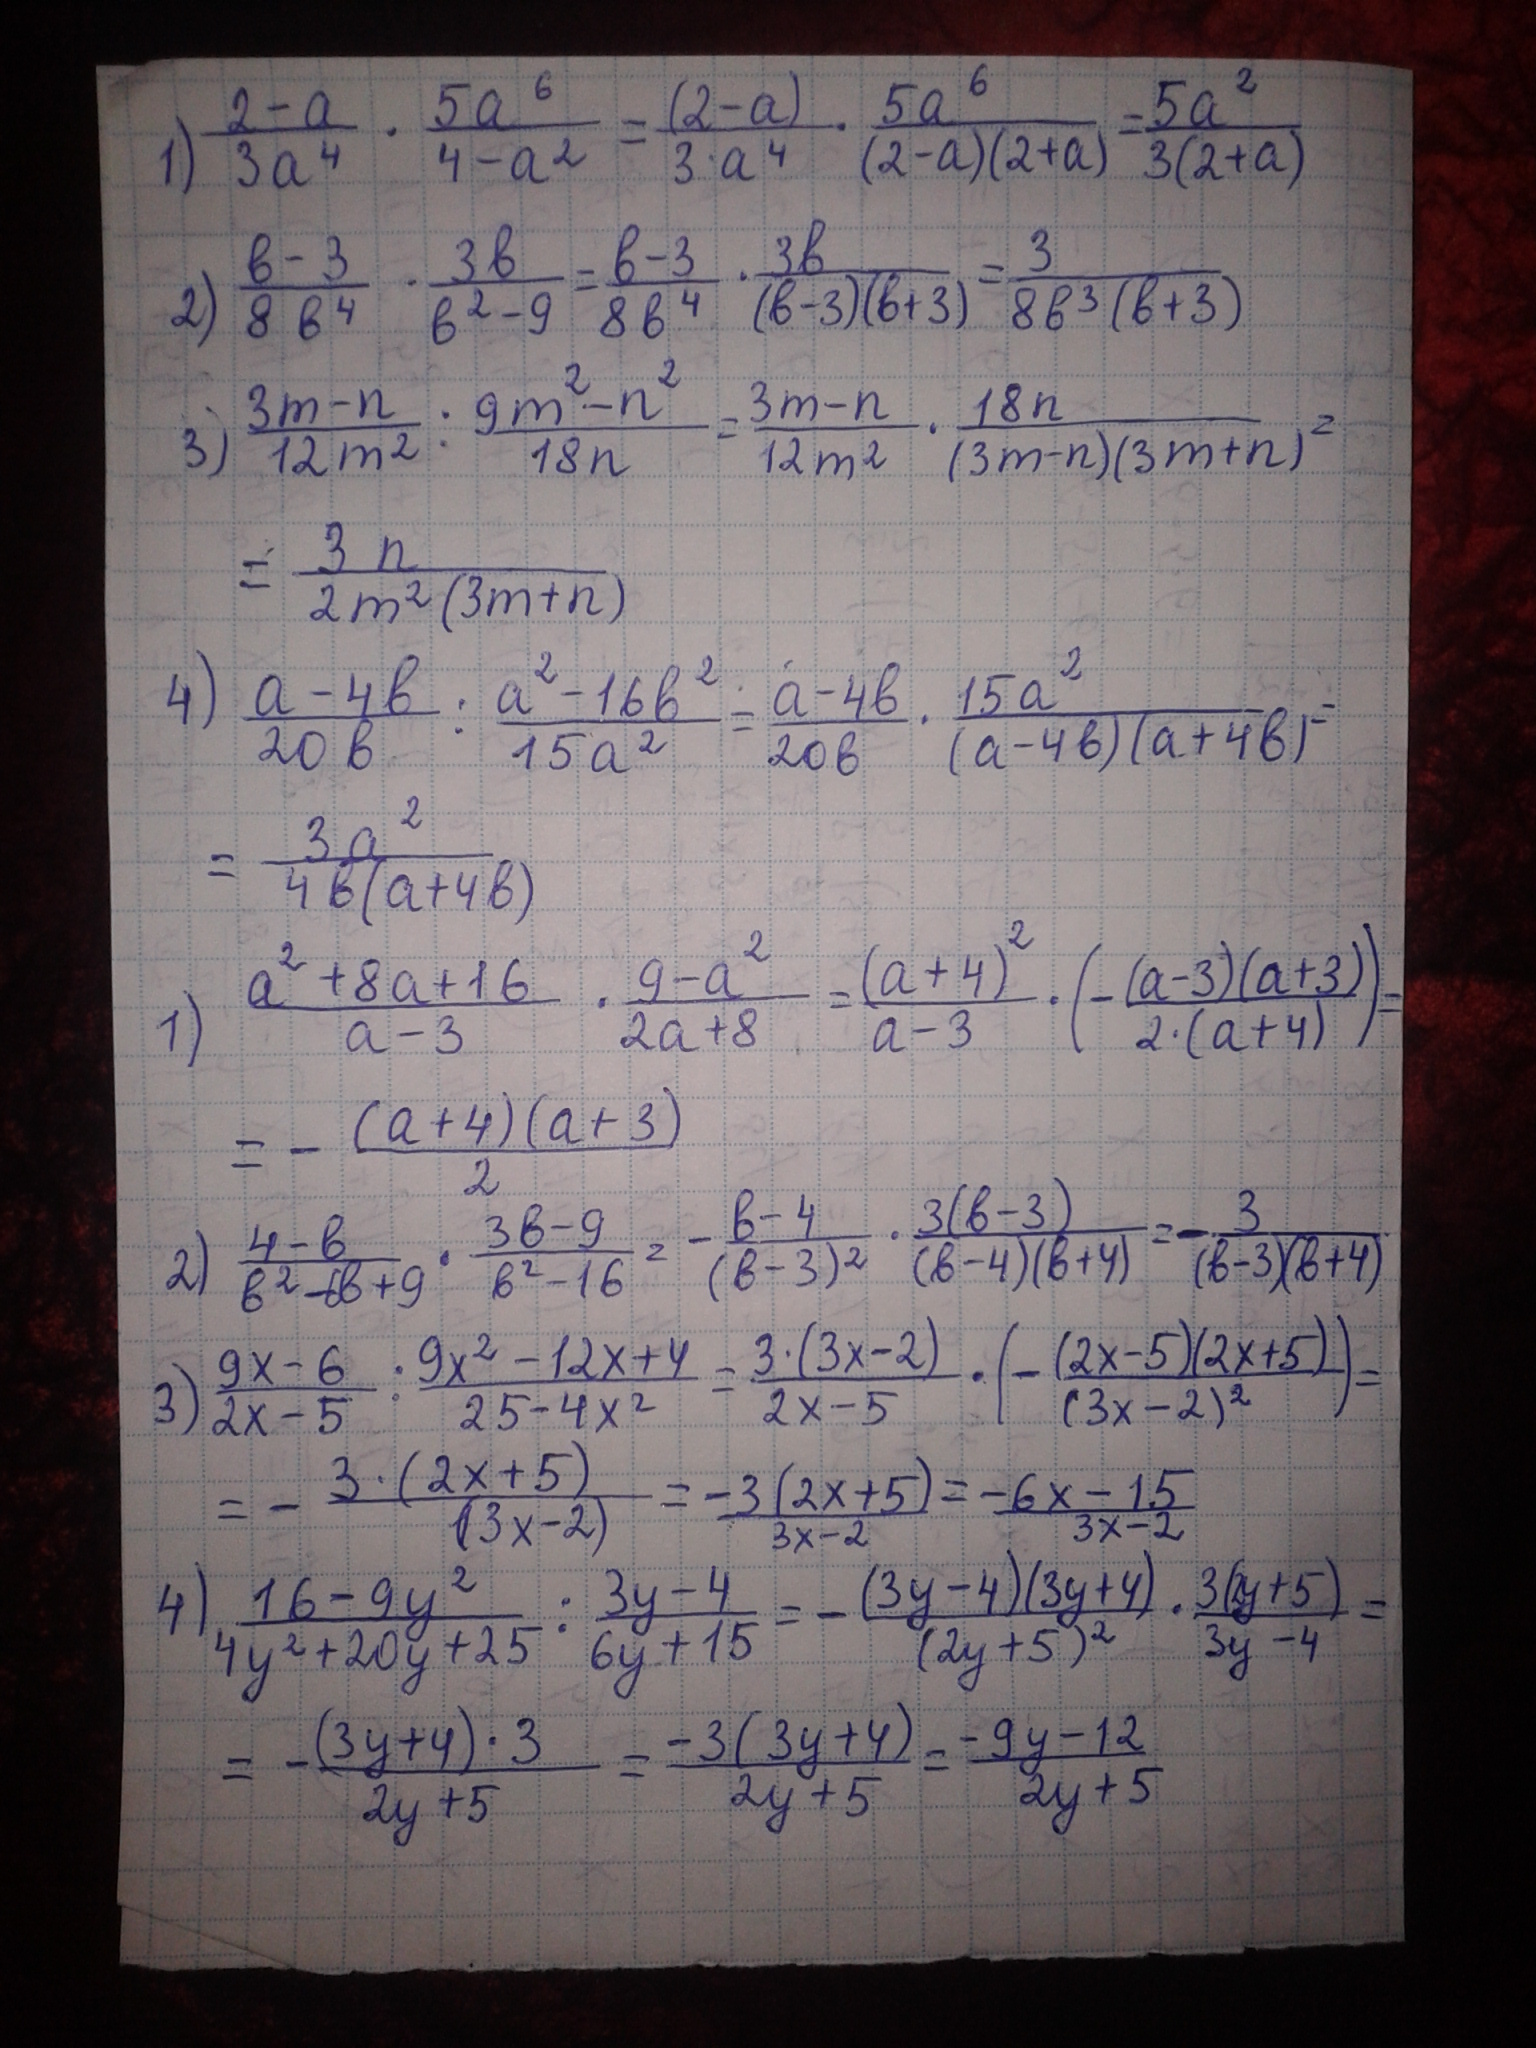 1) (2-a)/(3a^4) · (5a^6)/(4-a^2) = (2-a)/(3·a^4) · (5a^6)/((2-a)(2+a)) = (5a^2)/(3(2+a))
2) (в-3)/(8в^4) · (3в)/(в^2-9) = (в-3)/(8в^4) · (3в)/((в-3)(в+3)) = 3/(8в^3(в+3))
3) (3m-n)/(12m^2) : (9m^2-n^2)/(18n) = (3m-n)/(12m^2) · (18n)/((3m-n)(3m+n)) =
= (3n)/(2m^2(3m+n))
4) (a-4в)/(20в) : (a^2-16в^2)/(15a^2) = (a-4в)/(20в) · (15a^2)/((a-4в)(a+4в)) =
= (3a^2)/(4в(a+4в))
1) (a^2+8a+16)/(a-3) · (9-a^2)/(2a+8) = (a+4)^2/(a-3) · (-((a-3)(a+3))/(2·(a+4))) =
= - ((a+4)(a+3))/2
2) (4-в)/(в^2-6в+9) · (3в-9)/(в^2-16) = - (в-4)/(в-3)^2 · (3(в-3))/((в-4)(в+4)) = - 3/((в-3)(в+4))
3) (9x-6)/(2x-5) : (9x^2-12x+4)/(25-4x^2) = (3·(3x-2))/(2x-5) · (-((2x-5)(2x+5))/(3x-2)^2) =
= - (3·(2x+5))/(3x-2) = (-3(2x+5))/(3x-2) = (-6x-15)/(3x-2)
4) (16-9y^2)/(4y^2+20y+25) : (3y-4)/(6y+15) = - ((3y-4)(3y+4))/(2y+5)^2 · (3(2y+5))/(3y-4) =
= - ((3y+4)·3)/(2y+5) = (-3(3y+4))/(2y+5) = (-9y-12)/(2y+5)